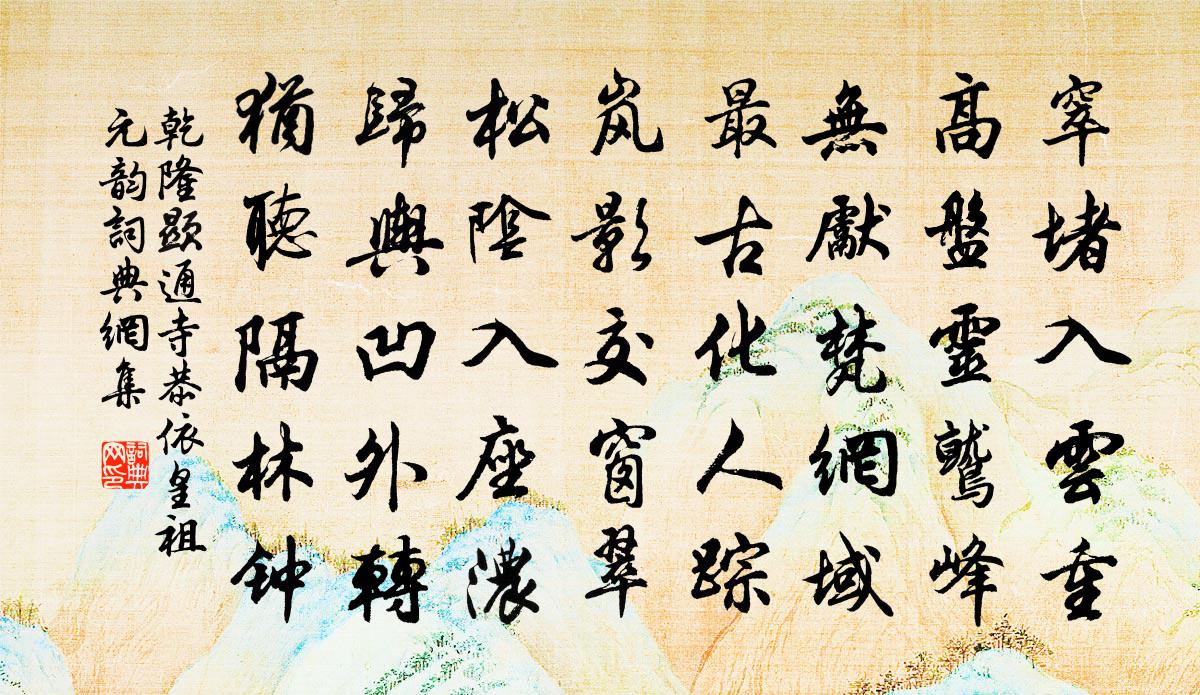 窣堵入雲重
高盤靈鷲峰
無獻梵網域
最古化人踪
岚影交窗翠
松陰入座濃
歸輿凹外轉
猶聽隔林钟
乾隆顯通寺恭依皇祖
元韵詞典網集
詞典
网印